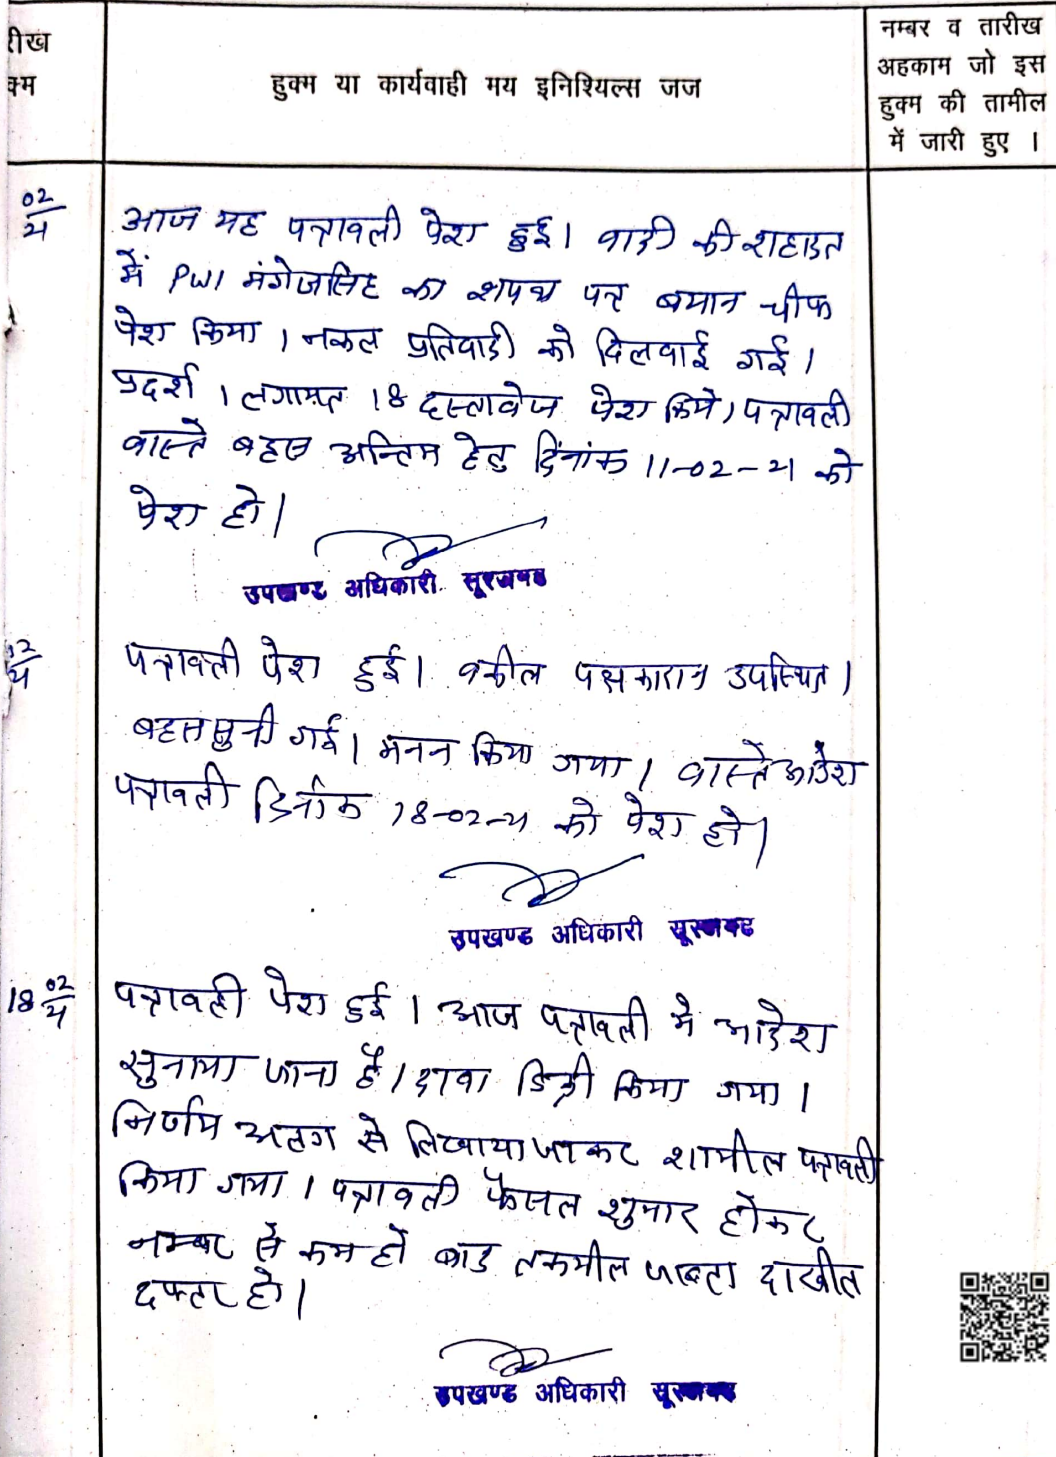 रीख
क्म
हुक्म या कार्यवाही मय इनिशियल्स जज
नम्बर व तारीख
अहकाम जो इस
हुक्म की तामील
में जारी हुए ।
02
21
आज यह पत्रावली पेश हुई। वादी की शहादत
में PW1 मंगेजसिंह का शपथ पत्र बयान चीफ
पेश किया । नकल प्रतिवादी को दिलवाई गई।
प्रदर्श 1 लगायत 18 दस्तावेज पेश किये। पत्रावली
वास्ते बहस अन्तिम हेतु दिनांक 11-02-21 को
पेश हो।
उपखण्ड अधिकारी सूरजगढ
02
21
पत्रावली पेश हुई। वकील पक्षकारान उपस्थित।
बहस सुनी गई। मनन किया गया। वास्ते आदेश
पत्रावली दिनांक 18-02-21 को पेश हो।
उपखण्ड अधिकारी सूरजगढ
18 02
21
पत्रावली पेश हुई । आज पत्रावली में आदेश
सुनाया जाना है। दावा डिक्री किया गया ।
निर्णय अलग से लिखाया जाकर शामील पत्रावली
किया गया । पत्रावली फैसल शुमार होकर
नम्बर से कम हो बाद तकमील जाब्ता दाखील
दफ्तर हो।
उपखण्ड अधिकारी सूरजगढ